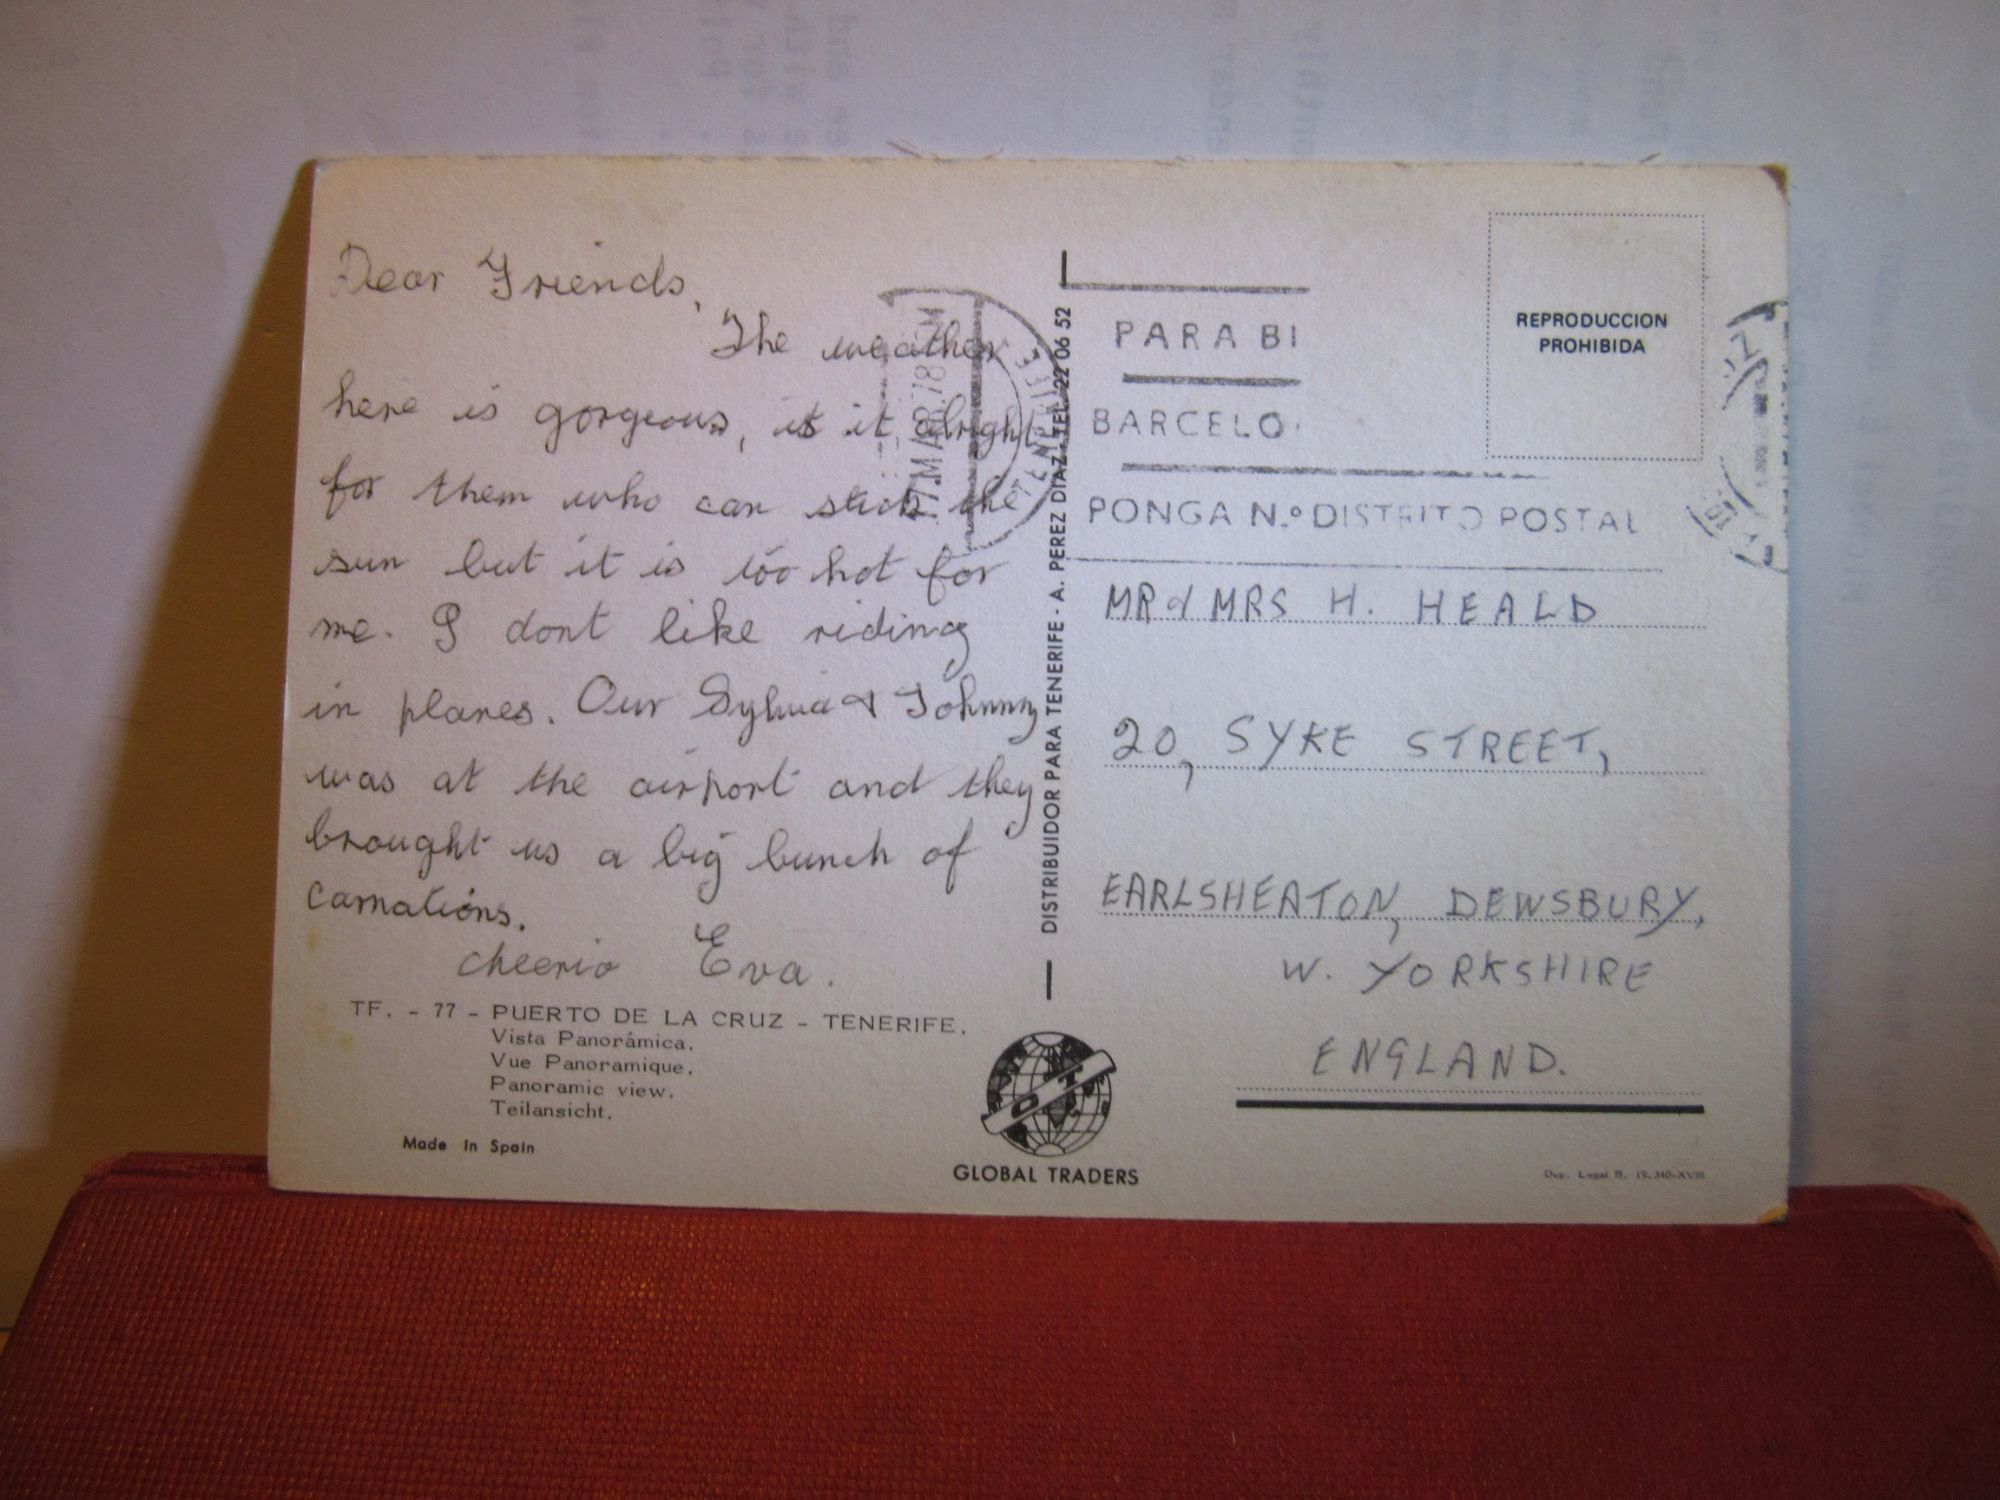 Dear Friends,
The weather
here is gorgeous, it it alright
for them who can stick the
sun but it is too hot for
me. I dont like riding
in planes. Our Sylvia & Johnny
was at the airport and they
brought us a big bunch of
carnations.
cheerio Eva.
TF. - 77 - PUERTO DE LA CRUZ - TENERIFE.
Vista Panorámica.
Vue Panoramique.
Panoramic view.
Teilansicht.
Made in Spain
17.MAR.78
TENERIFE
DISTRIBUIDOR PARA TENERIFE - A. PEREZ DIAZ-TEL. 22 06 52
GLOBAL TRADERS
PARA BI
BARCELO
PONGA N.º DISTRITO POSTAL
REPRODUCCION
PROHIBIDA
MR & MRS H. HEALD
20, SYKE STREET,
EARLSHEATON, DEWSBURY,
W. YORKSHIRE
ENGLAND.
Dep. Legal B. 19.340-XVIII